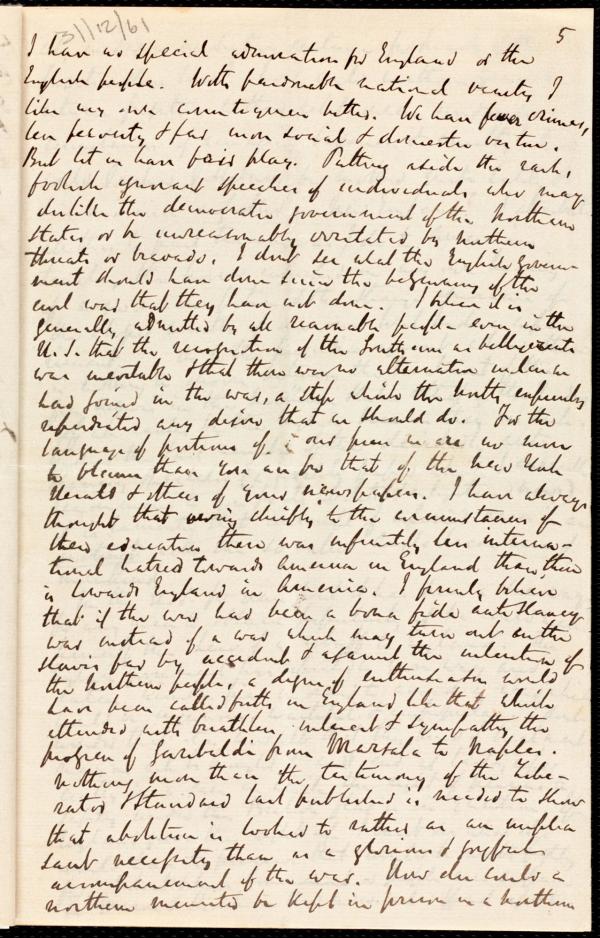 31/12/61
5
I have no special admiration for England or the
English people. With pardonable national vanity I
like my own countrymen better. We have fewer crimes,
less poverty & far more social & domestic virtue.
But let us have fair play. Putting aside the rash,
foolish ignorant speeches of individuals who may
dislike the democratic government of the Northern
States or be unreasonably irritated by Northern
threats or bravado, I don't see what the English govern-
ment should have done since the beginning of the
civil war that they have not done. I believe it is
generally admitted by all reasonable people even in the
U.S. that the recognition of the Southern as belligerents
was inevitable & that there was no alternative unless we
had joined in the war, a step which the North expressly
repudiated any desire that we should do. For the
language of portions of our press we are no more
to blame than you are for that of the New York
Herald & others of your newspapers. I have always
thought that owing chiefly to the circumstances of
their education there was infinitely less interna-
tional hatred towards America in England than there
is towards England in America. I firmly believe
that if the war had been a bona fide anti slavery
war instead of a war which may turn out on the
slaves far by accident & against the intention of
the Northern people, a degree of enthusiasm would
have been called forth in England like that which
attended with breathless interest & sympathy the
progress of Garibaldi from Marsala to Naples.
Nothing more than the testimony of the Libe-
rator & Standard last published is needed to show
that abolition is looked to rather as an unplea
sant necessity than as a glorious & joyful
accompaniment of the war. How else could a
northern minister be kept in prison in a northern